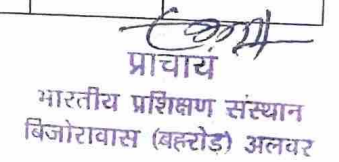 प्राचार्य
भारतीय प्रशिक्षण संस्थान
बिजोरावास (बहरोड़) अलवर